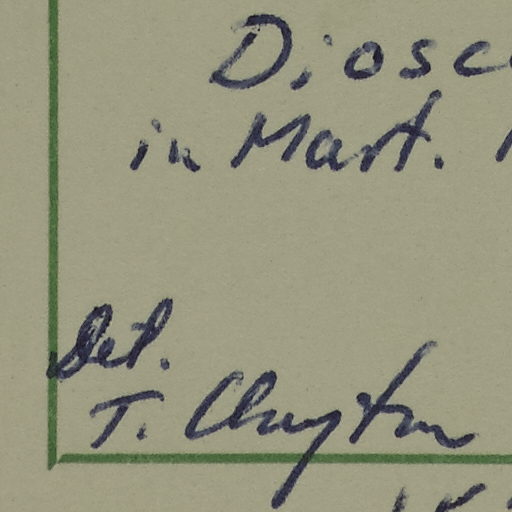 Diosc
in Mart.
Det.
T. Clayton